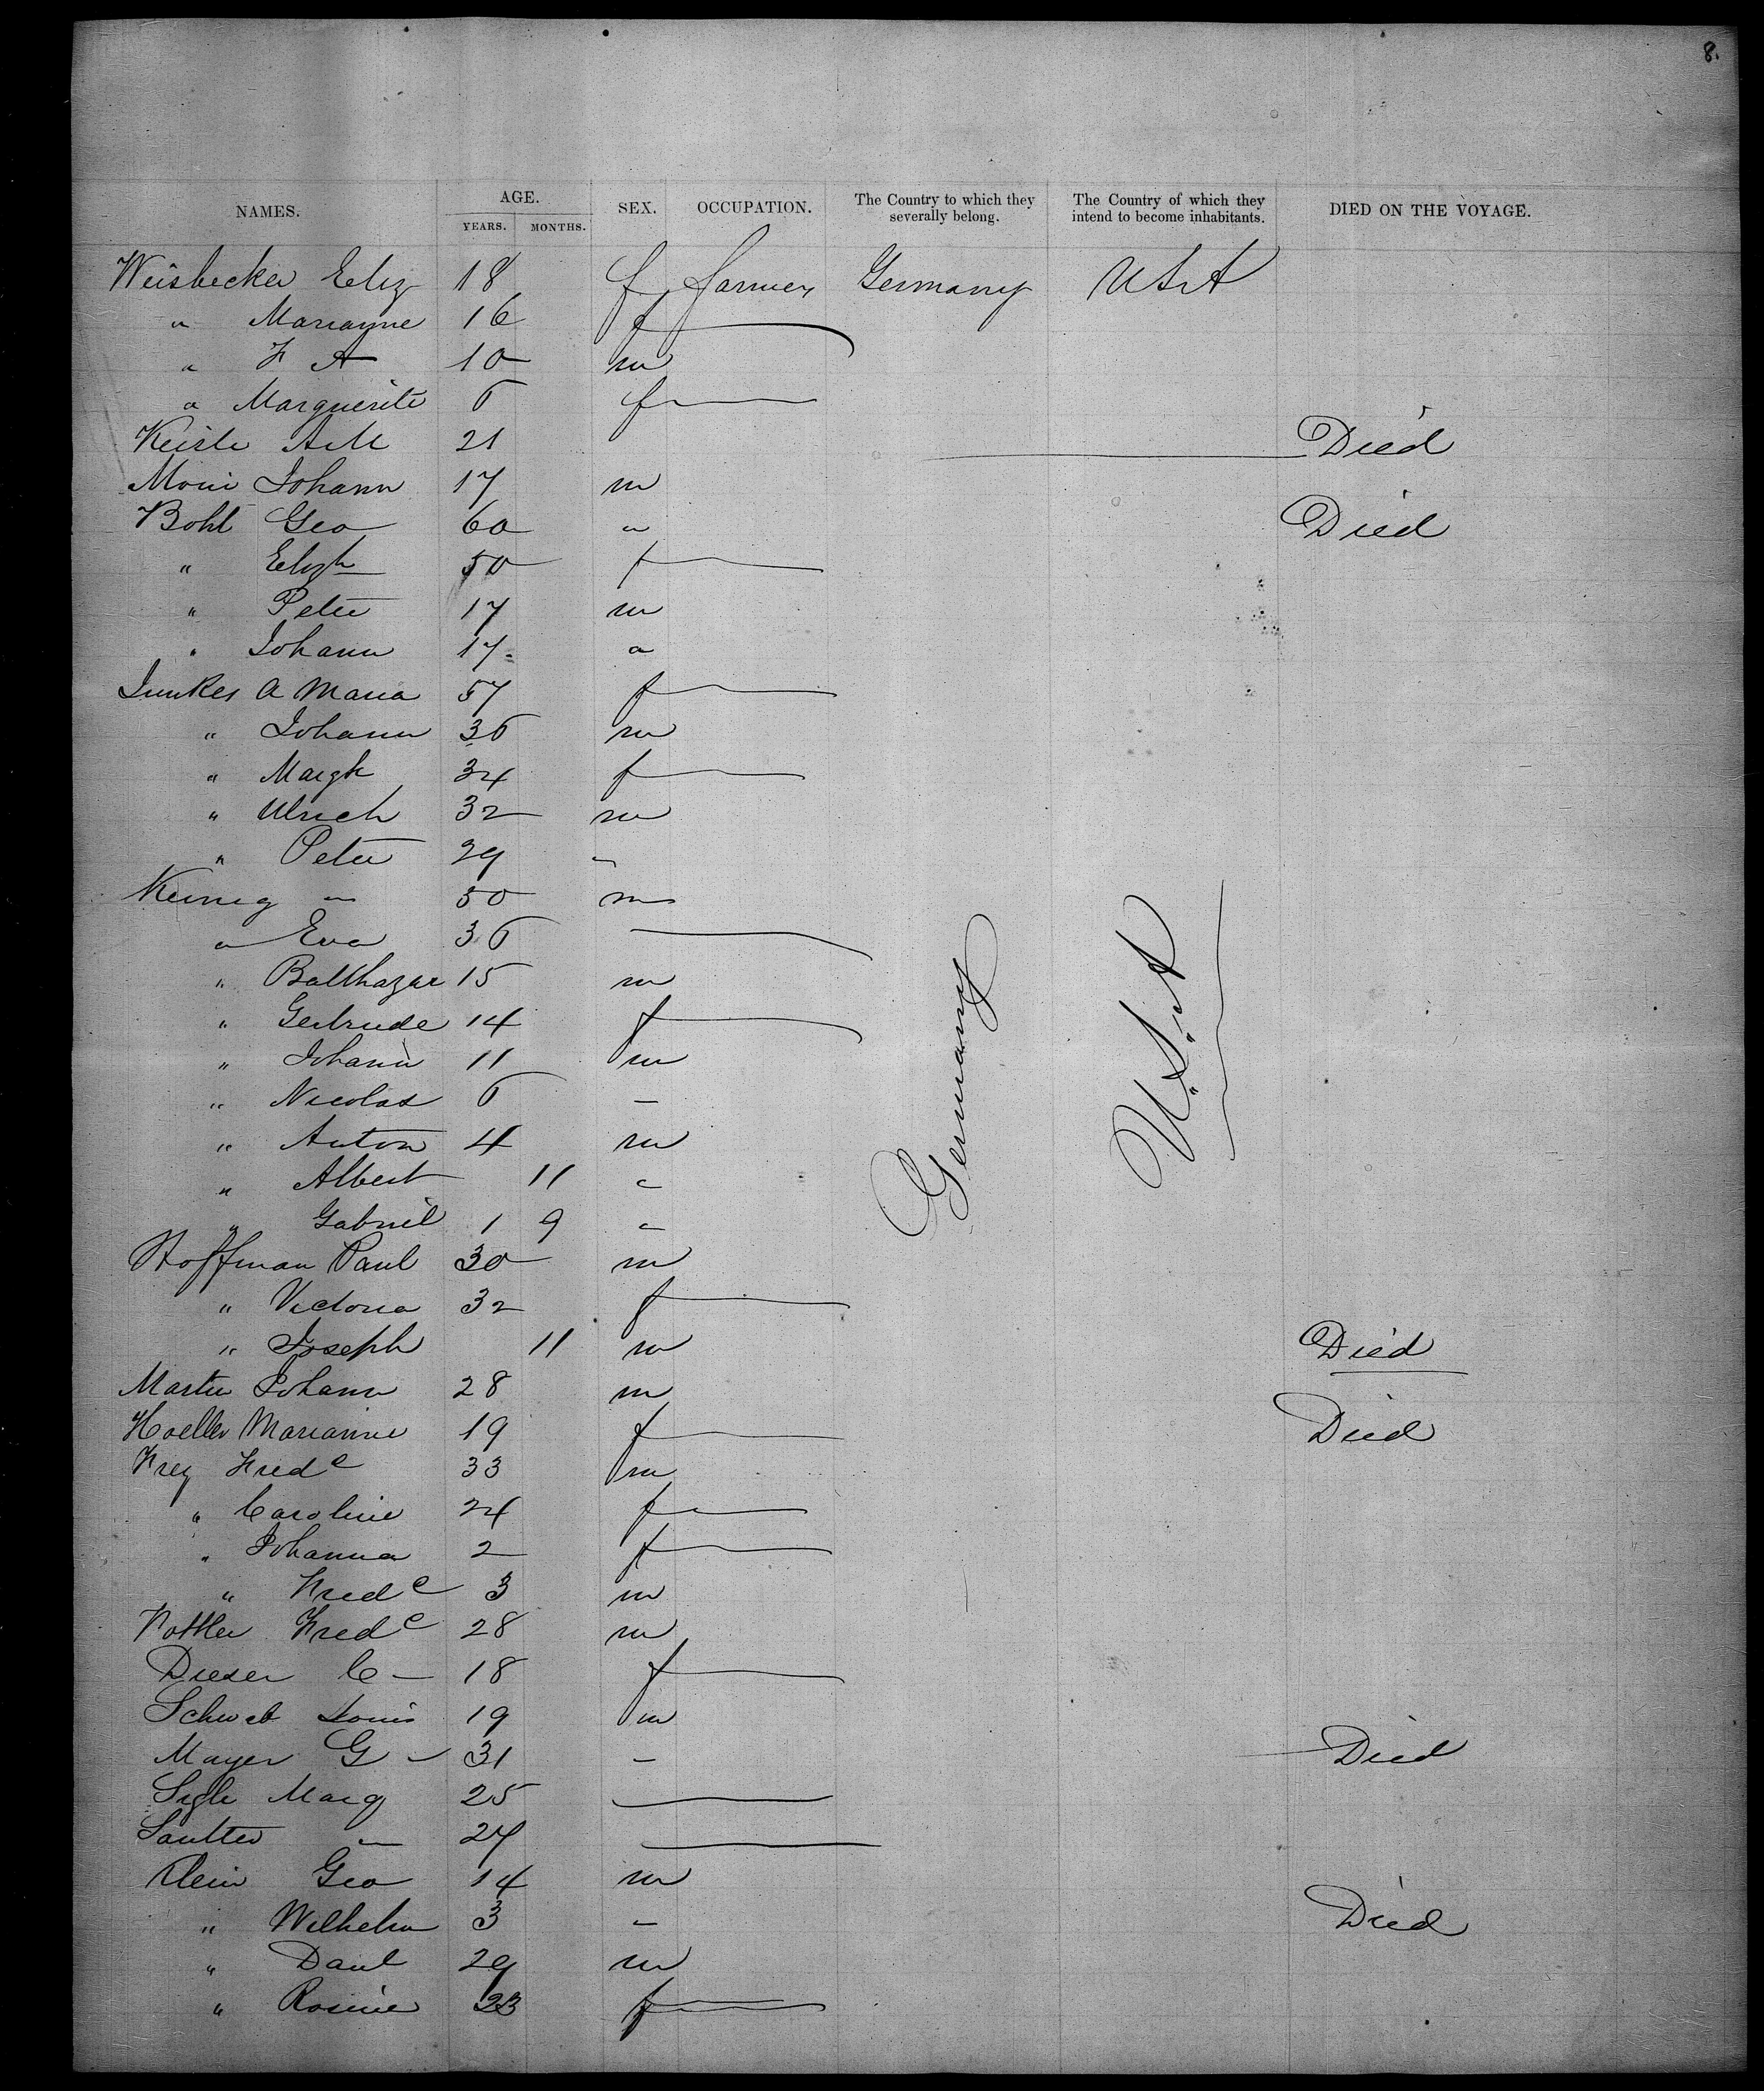 8.
NAMES. AGE. SEX. OCCUPATION. The Country to which they severally belong. The Country of which they intend to become inhabitants. DIED ON THE VOYAGE.
YEARS. MONTHS.
Weisbecker Eliz 18 f farmer Germany USA
" Marianne 16 f
" F A 10 m
" Marguerite 6 f
Keisle AM 21 Died
Moni Johann 17 m
Bohl Geo 60 " Died
" Elizh 50 f
" Peter 17 m
" Johann 17 "
Junkes A Maria 57 f
" Johann 36 m
" Margh 34 f
" Ulrich 32 m
" Peter 29 "
" 50 m
" Eva 36
" Balthazar 15 m
" Gertrude 14 f
" Johann 11 m
" Nicolas 6 "
" Anton 4 m
" Albert 11 "
" Gabriel 1 9 "
Germany
U.S.A
Hoffman Paul 30 m
" Victoria 32 f
" Joseph 11 m Died
Martin Johann 28 m
Hoeller Marianne 19 f Died
Frey Fredc 33 m
" Caroline 24 f
" Johanna 2 f
" Fredc 3 m
Fredc 28 m
Dieser C 18 f
Schwab Louis 19 m
Mayer G 31 " Died
Sigle Marg 25
Sautter " 27
Klein Geo 14 m
" Wilhelm 3 " Died
" Danl 29 m
" Rosine 23 f